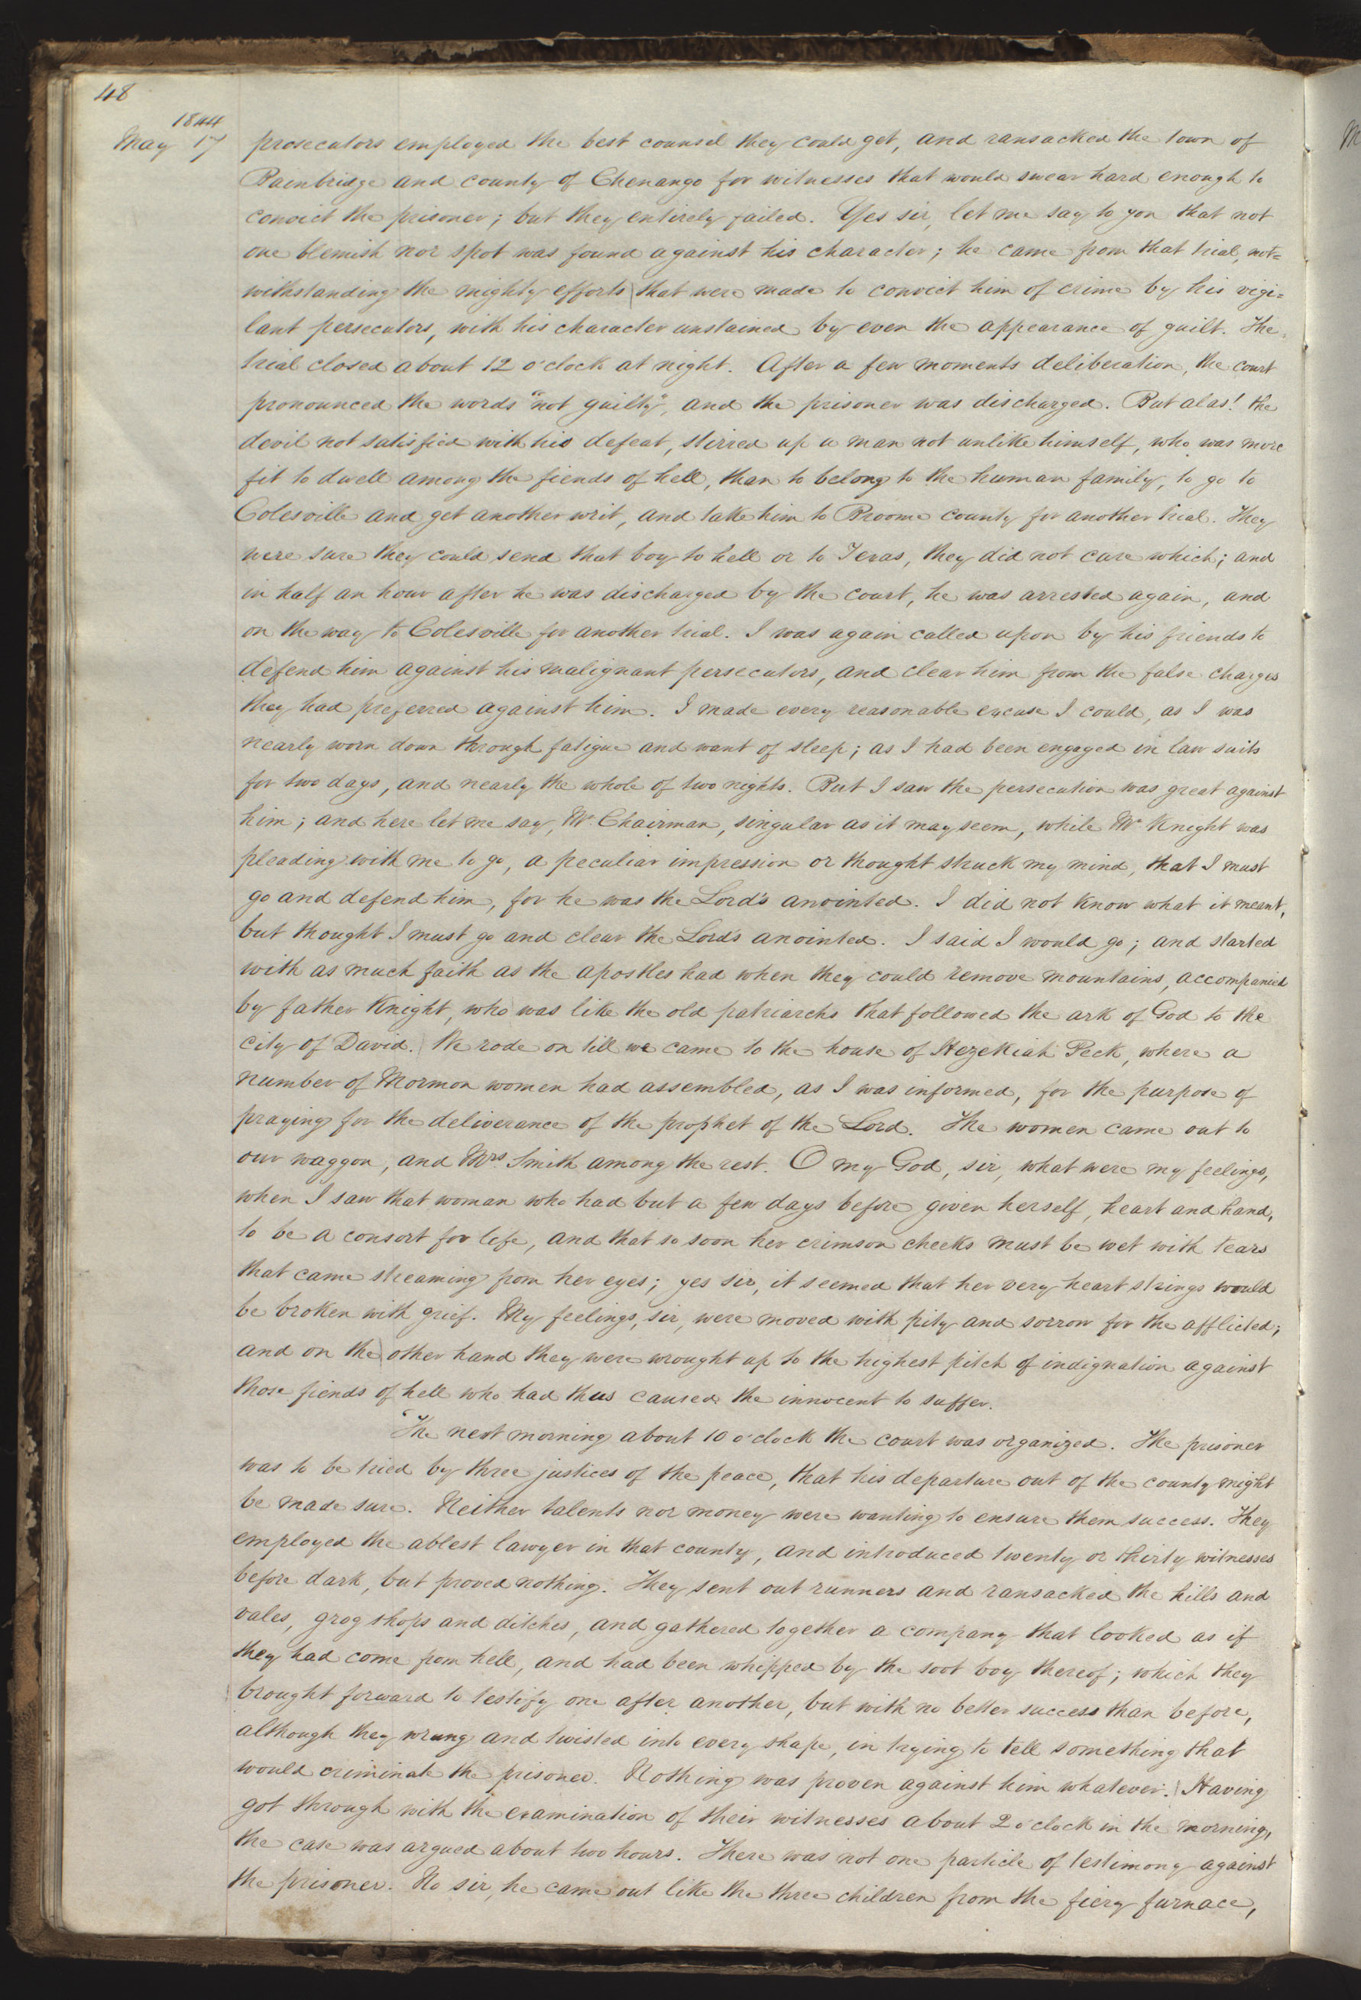 48
1844
May 17 prosecutors employed the best counsel they could get, and ransacked the town of
Bainbridge and county of Chenango for witnesses that would swear hard enough to
convict the prisoner; but they entirely failed. Yes sir, let me say to you that not
one blemish nor spot was found against his character; he came from that trial, not=
withstanding the mighty efforts that were made to convict him of crime by his vigi=
lant persecutors, with his character unstained by even the appearance of guilt. The
trial closed about 12 o'clock at night. After a few moments deliberation, the court
pronounced the words "not guilty", and the prisoner was discharged. But alas! the
devil not satisfied with his defeat, stirred up a man not unlike himself, who was more
fit to dwell among the fiends of hell, than to belong to the human family, to go to
Colesville and get another writ, and take him to Broome county for another trial. They
were sure they could send that boy to hell or to Texas, they did not care which; and
in half an hour after he was discharged by the court, he was arrested again, and
on the way to Colesville for another trial. I was again called upon by his friends to
defend him against his malignant persecutors, and clear him from the false charges
they had preferred against him. I made every reasonable excuse I could, as I was
nearly worn down through fatigue and want of sleep; as I had been engaged in law suits
for two days, and nearly the whole of two nights. But I saw the persecution was great against
him; and here let me say, Mr Chairman, singular as it may seem, while Mr Knight was
pleading with me to go, a peculiar impression or thought struck my mind, that I must
go and defend him, for he was the Lord's anointed. I did not know what it meant,
but thought I must go and clear the Lord's anointed. I said I would go; and started
with as much faith as the apostles had when they could remove mountains, accompanied
by father Knight, who was like the old patriarchs that followed the ark of God to the
city of David. We rode on till we came to the house of Hezekiah Peck, where a
number of Mormon women had assembled, as I was informed, for the purpose of
praying for the deliverance of the prophet of the Lord. The women came out to
our waggon, and Mrs Smith among the rest. O my God, sir, what were my feelings,
when I saw that woman who had but a few days before given herself, heart and hand,
to be a consort for life, and that so soon her crimson cheeks must be wet with tears
that came streaming from her eyes; yes sir, it seemed that her very heart strings would
be broken with grief. My feelings, sir, were moved with pity and sorrow for the afflicted;
and on the other hand they were wrought up to the highest pitch of indignation against
those fiends of hell who had thus caused the innocent to suffer.
"The next morning about 10 o'clock the court was organized. The prisoner
was to be tried by three justices of the peace, that his departure out of the county might
be made sure. Neither talents nor money were wanting to ensure them success. They
employed the ablest lawyer in that county, and introduced twenty or thirty witnesses
before dark, but proved nothing. They sent out runners and ransacked the hills and
vales, grog shops and ditches, and gathered together a company that looked as if
they had come from hell, and had been whipped by the soot boy thereof; which they
brought forward to testify one after another, but with no better success than before,
although they wrung and twisted into every shape, in trying to tell something that
would criminate the prisoner. Nothing was proven against him whatever. Having
got through with the examination of their witnesses about 2 o'clock in the morning,
the case was argued about two hours. There was not one particle of testimony against
the prisoner. No sir, he came out like the three children from the fiery furnace,